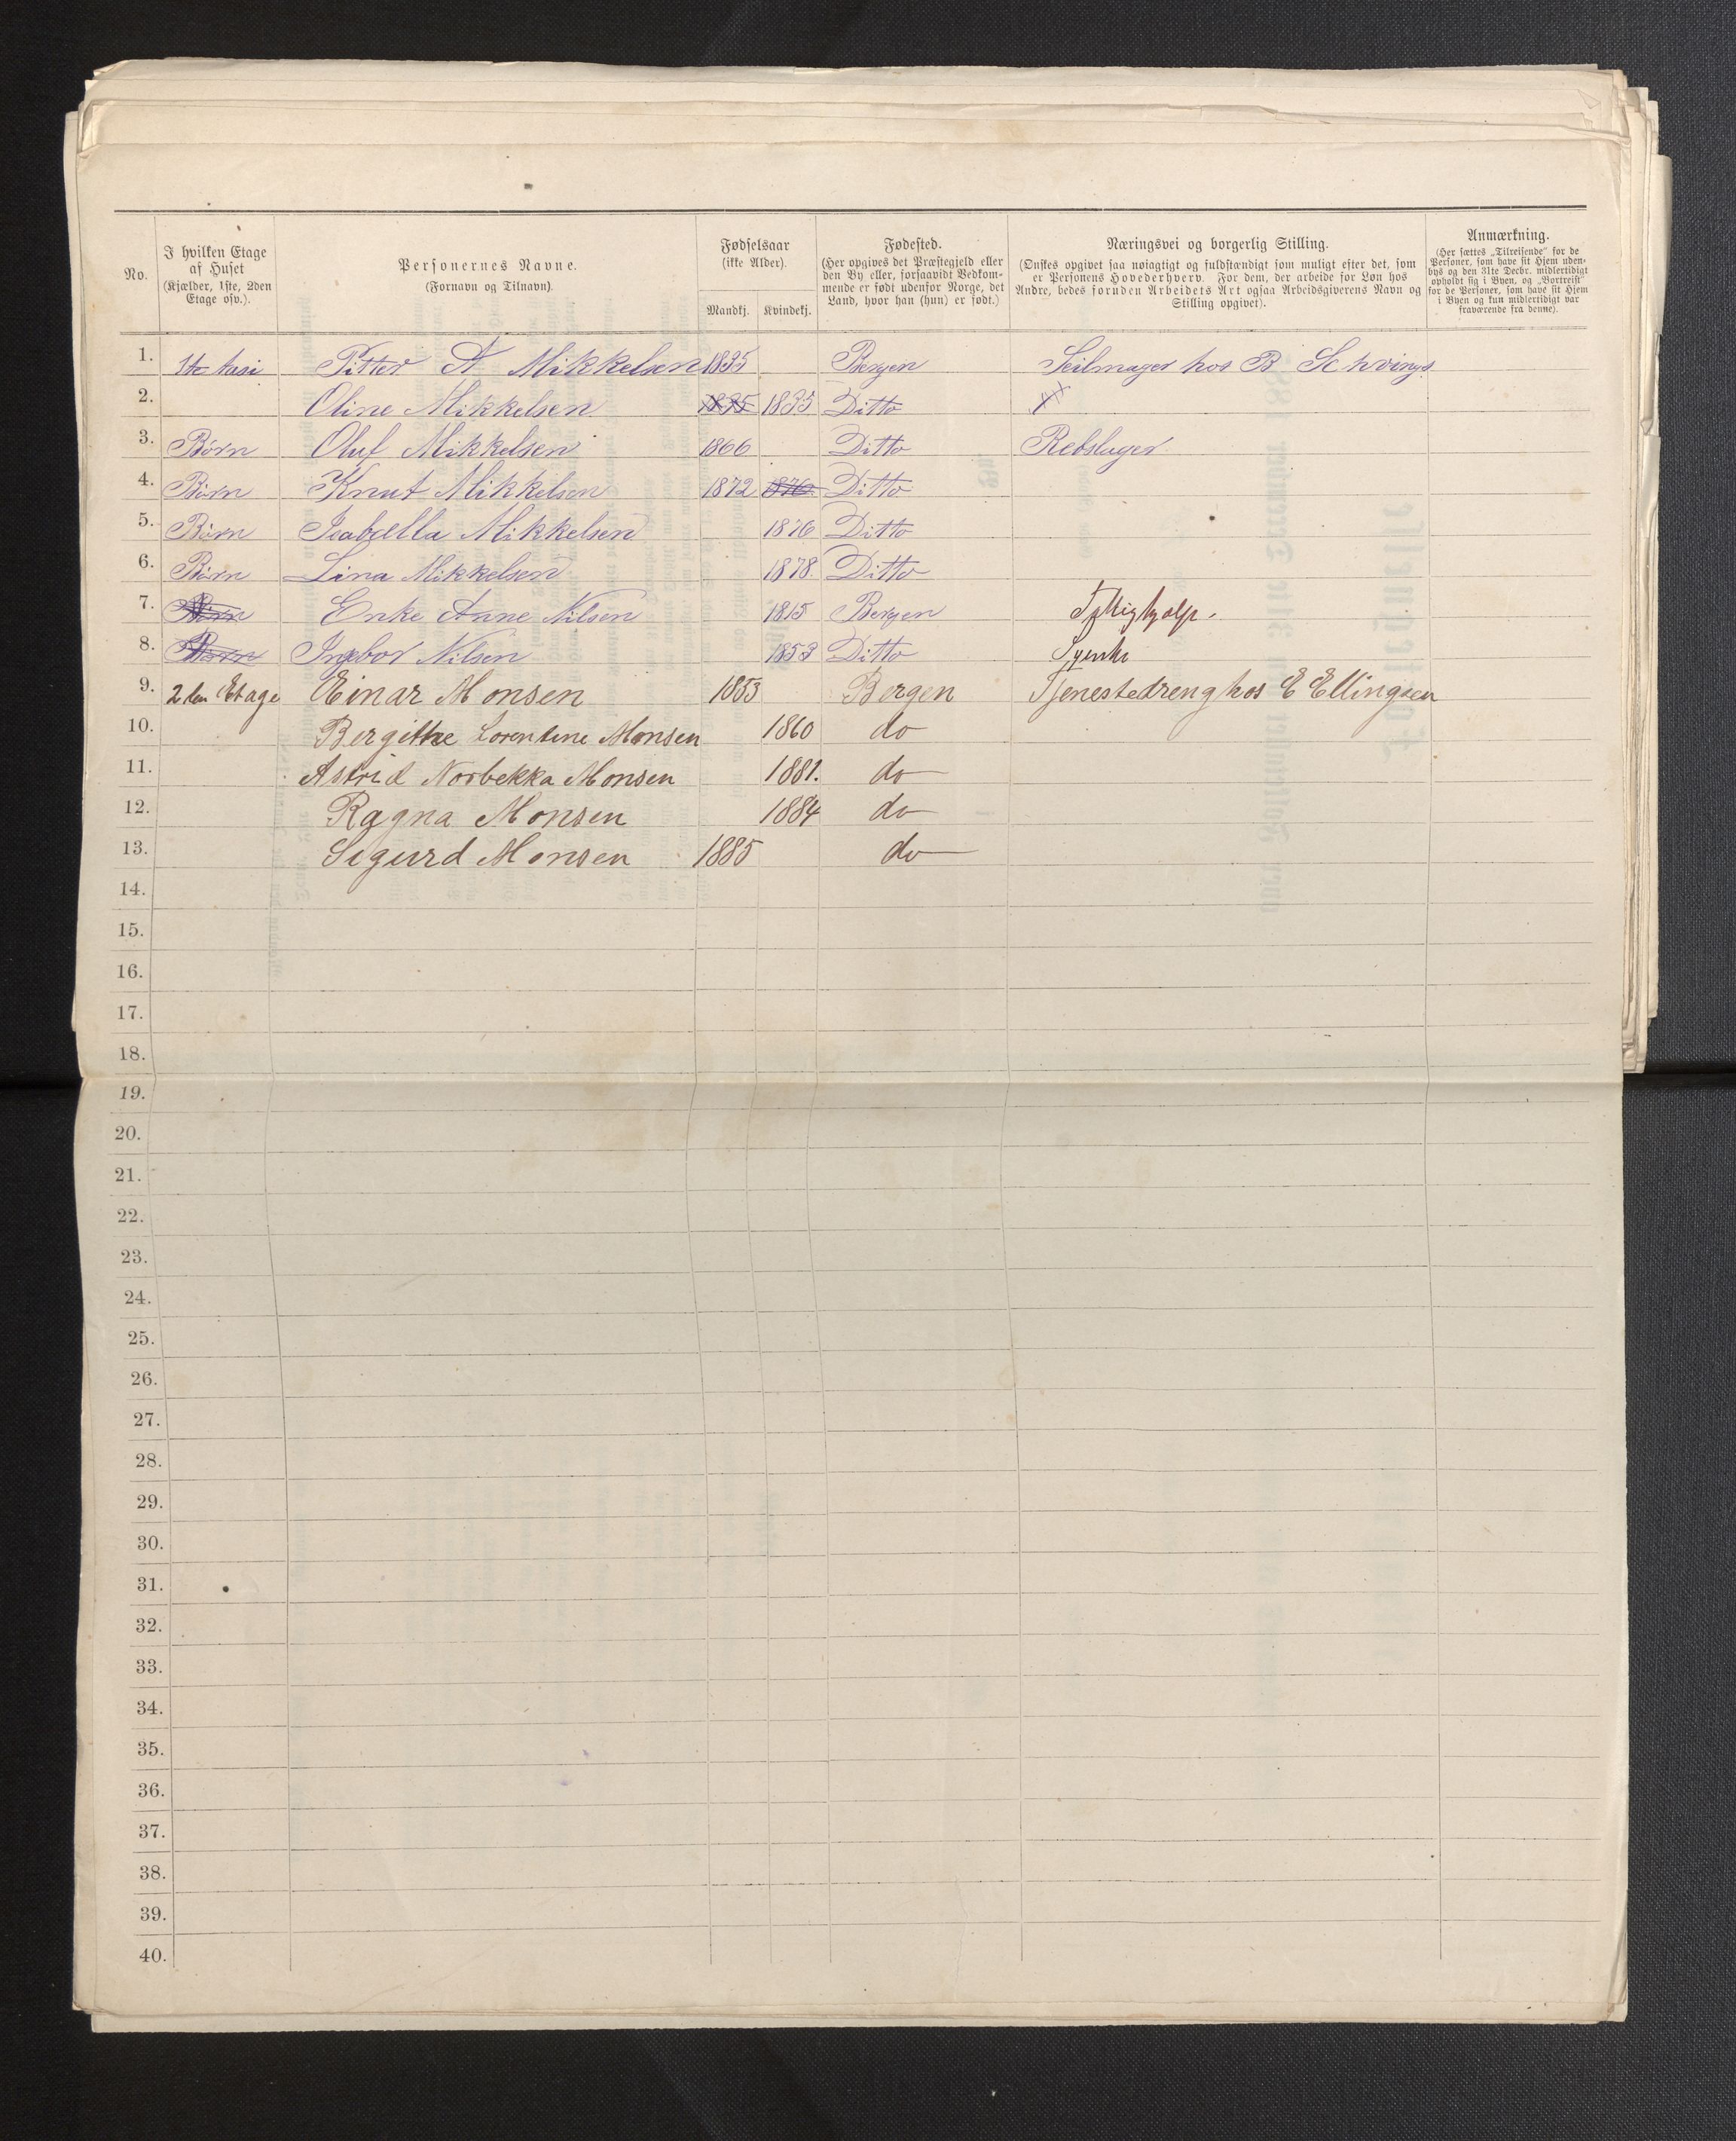 No.
I hvilken Etage af Huset (Kjælder, 1ste, 2den Etage osv.).
Personernes Navne. (Fornavn og Tilnavn).
Fødselsaar (ikke Alder).
Mandkj. Kvindekj.
Fødested. (Her opgives det Præstegjeld eller den By eller, forsaavidt Vedkommende er født udenfor Norge, det Land, hvor han (hun) er født.)
Næringsvei og borgerlig Stilling. (Ønskes opgivet saa nøiagtigt og fuldstændigt som muligt efter det, som er Personens Hovederhverv. For dem, der arbeide for Løn hos Andre, bedes foruden Arbeidets Art ogsaa Arbeidsgiverens Navn og Stilling opgivet).
Anmærkning. (Her sættes „Tilreisende“ for de Personer, som have sit Hjem udenbys og den 31te Decbr. midlertidigt opholdt sig i Byen, og „Bortreist“ for de Personer, som have sit Hjem i Byen og kun midlertidigt var fraværende fra denne).
1. Pitter A Mikkelsen 1835 Bergen Seilmager hos B Schvings
2. Oline Mikkelsen 1835 1835 Ditto
3. Børn Oluf Mikkelsen 1866 Ditto Rebslager
4. Børn Knut Mikkelsen 1872 1876 Ditto
5. Børn Isabella Mikkelsen 1876 Ditto
6. Børn Lina Mikkelsen 1878 Ditto
7. Børn Enke Anne Nilsen 1815 Bergen
8. Børn Ingebor Nilsen 1853 Ditto
9. 2den Etage Einar Monsen 1853 Bergen Tjenestedreng hos E Ellingsen
10. Bergithe Lorentine Monsen 1860 do
11. Astrid Norbekka Monsen 1881. do
12. Ragna Monsen 1884 do
13. Sigurd Monsen 1885 do
14.
15.
16.
17.
18.
19.
20.
21.
22.
23.
24.
25.
26.
27.
28.
29.
30.
31.
32.
33.
34.
35.
36.
37.
38.
39.
40.